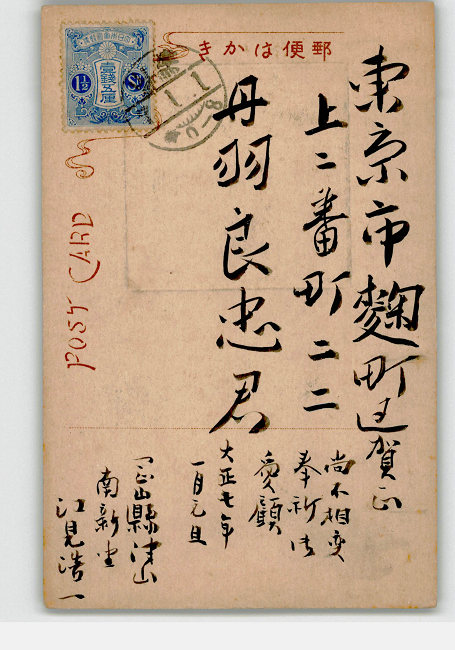 郵便はかき
東京市麹町区
上二番町二二
丹羽良忠君
賀正
尚不相変
奉祈御
愛顧
大正七年
一月元旦
岡山縣津山
南新坐
江見浩一
POST CARD
大日本帝国郵便
壹銭五厘
1½ Sn